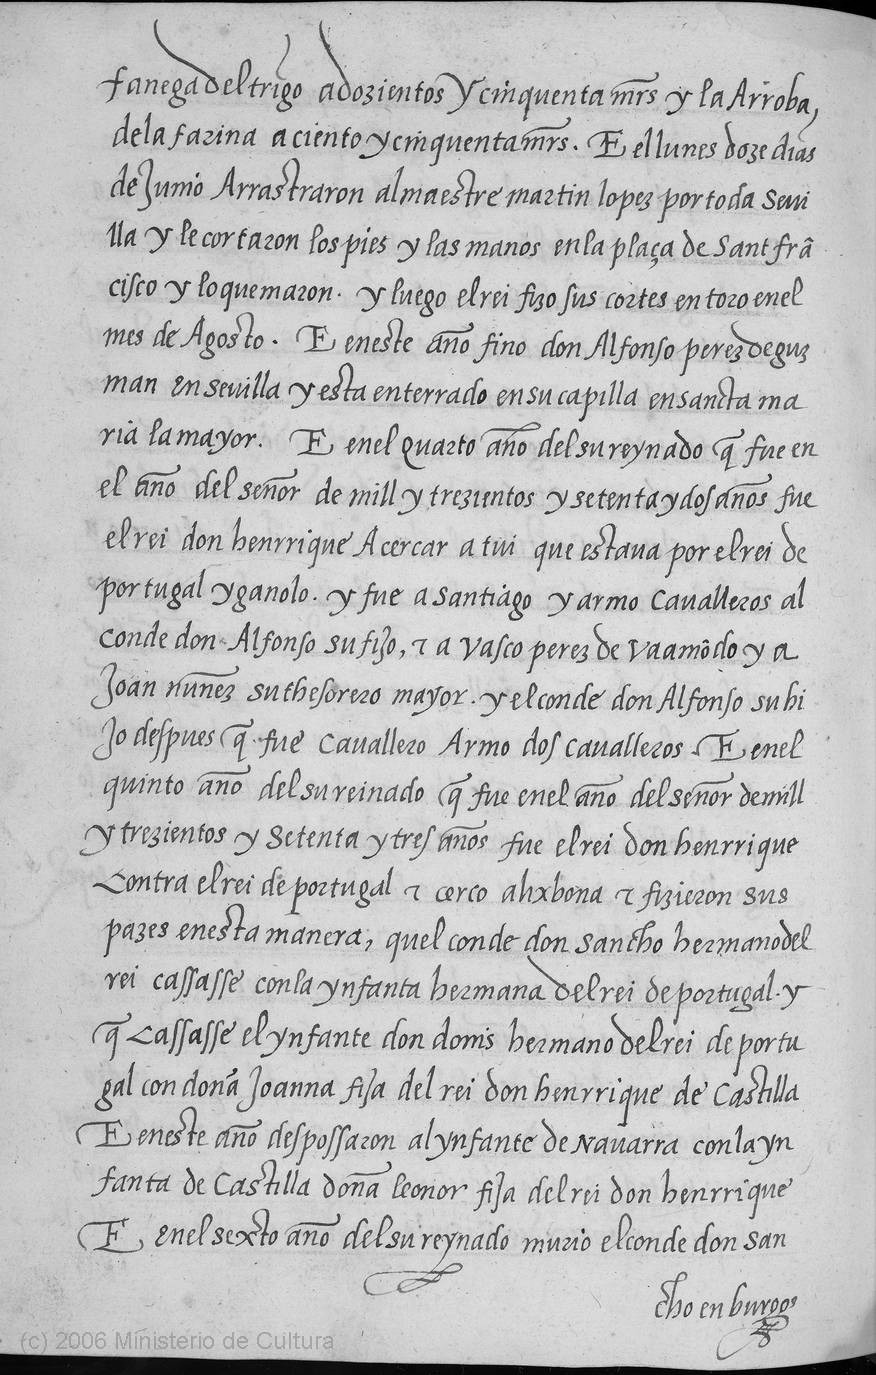 fanega del trigo a dozientos y cinquenta mr̃s y la Arroba,
dela farina a ciento y cinquenta mr̃s. E el lunes doze dias
de Junio Arrastraron al maestre martin lopez por toda Sevi
lla y le cortaron los pies y las manos en la plaça de Sant frã
cisco y lo quemaron. y luego el rei fizo sus cortes en toro en el
mes de Agosto. E en este año fino don Alfonso perez de guz
man en Sevilla y esta enterrado en su capilla en sancta ma
ria la mayor. E en el quarto año del su reynado q̃ fue en
el año del señor de mill y trezientos y setenta y dos años fue
el rei don henrrique A cercar a tui que estaua por el rei de
portugal y ganolo. y fue a Santiago y armo Caualleros al
conde don Alfonso su fijo, τ a Vasco perez de Vaamõdo y a
Joan nuñez su thesorero mayor. y el conde don Alfonso su hi
jo despues q̃ fue Cauallero Armo dos caualleros. E en el
quinto año del su reinado q̃ fue en el año del señor de mill
y trezientos y Setenta y tres años fue el rei don henrrique
Contra el rei de portugal τ cerco a lixbona τ fizieron sus
pazes en esta manera, quel conde don Sancho hermano del
rei cassasse con la ynfanta hermana del rei de portugal. y
q̃ Cassasse el ynfante don donis hermano del rei de portu
gal con doña Joanna fija del rei don henrrique de Castilla
E en este año despossaron al ynfante de Nauarra con la yn
fanta de Castilla doña leonor fija del rei don henrrique
E en el sexto año del su reynado murio el conde don San
cho en burgos
(c) 2006 Ministerio de Cultura